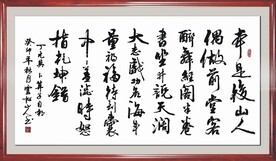 本是後山人
偶做前堂客
醉舞經閣半卷
書坐井説天闊
大志戲功名海斗
量福禍論到囊
中羞澀時怒
指乾坤錯
丁元英卜算子自嘲
年秋月